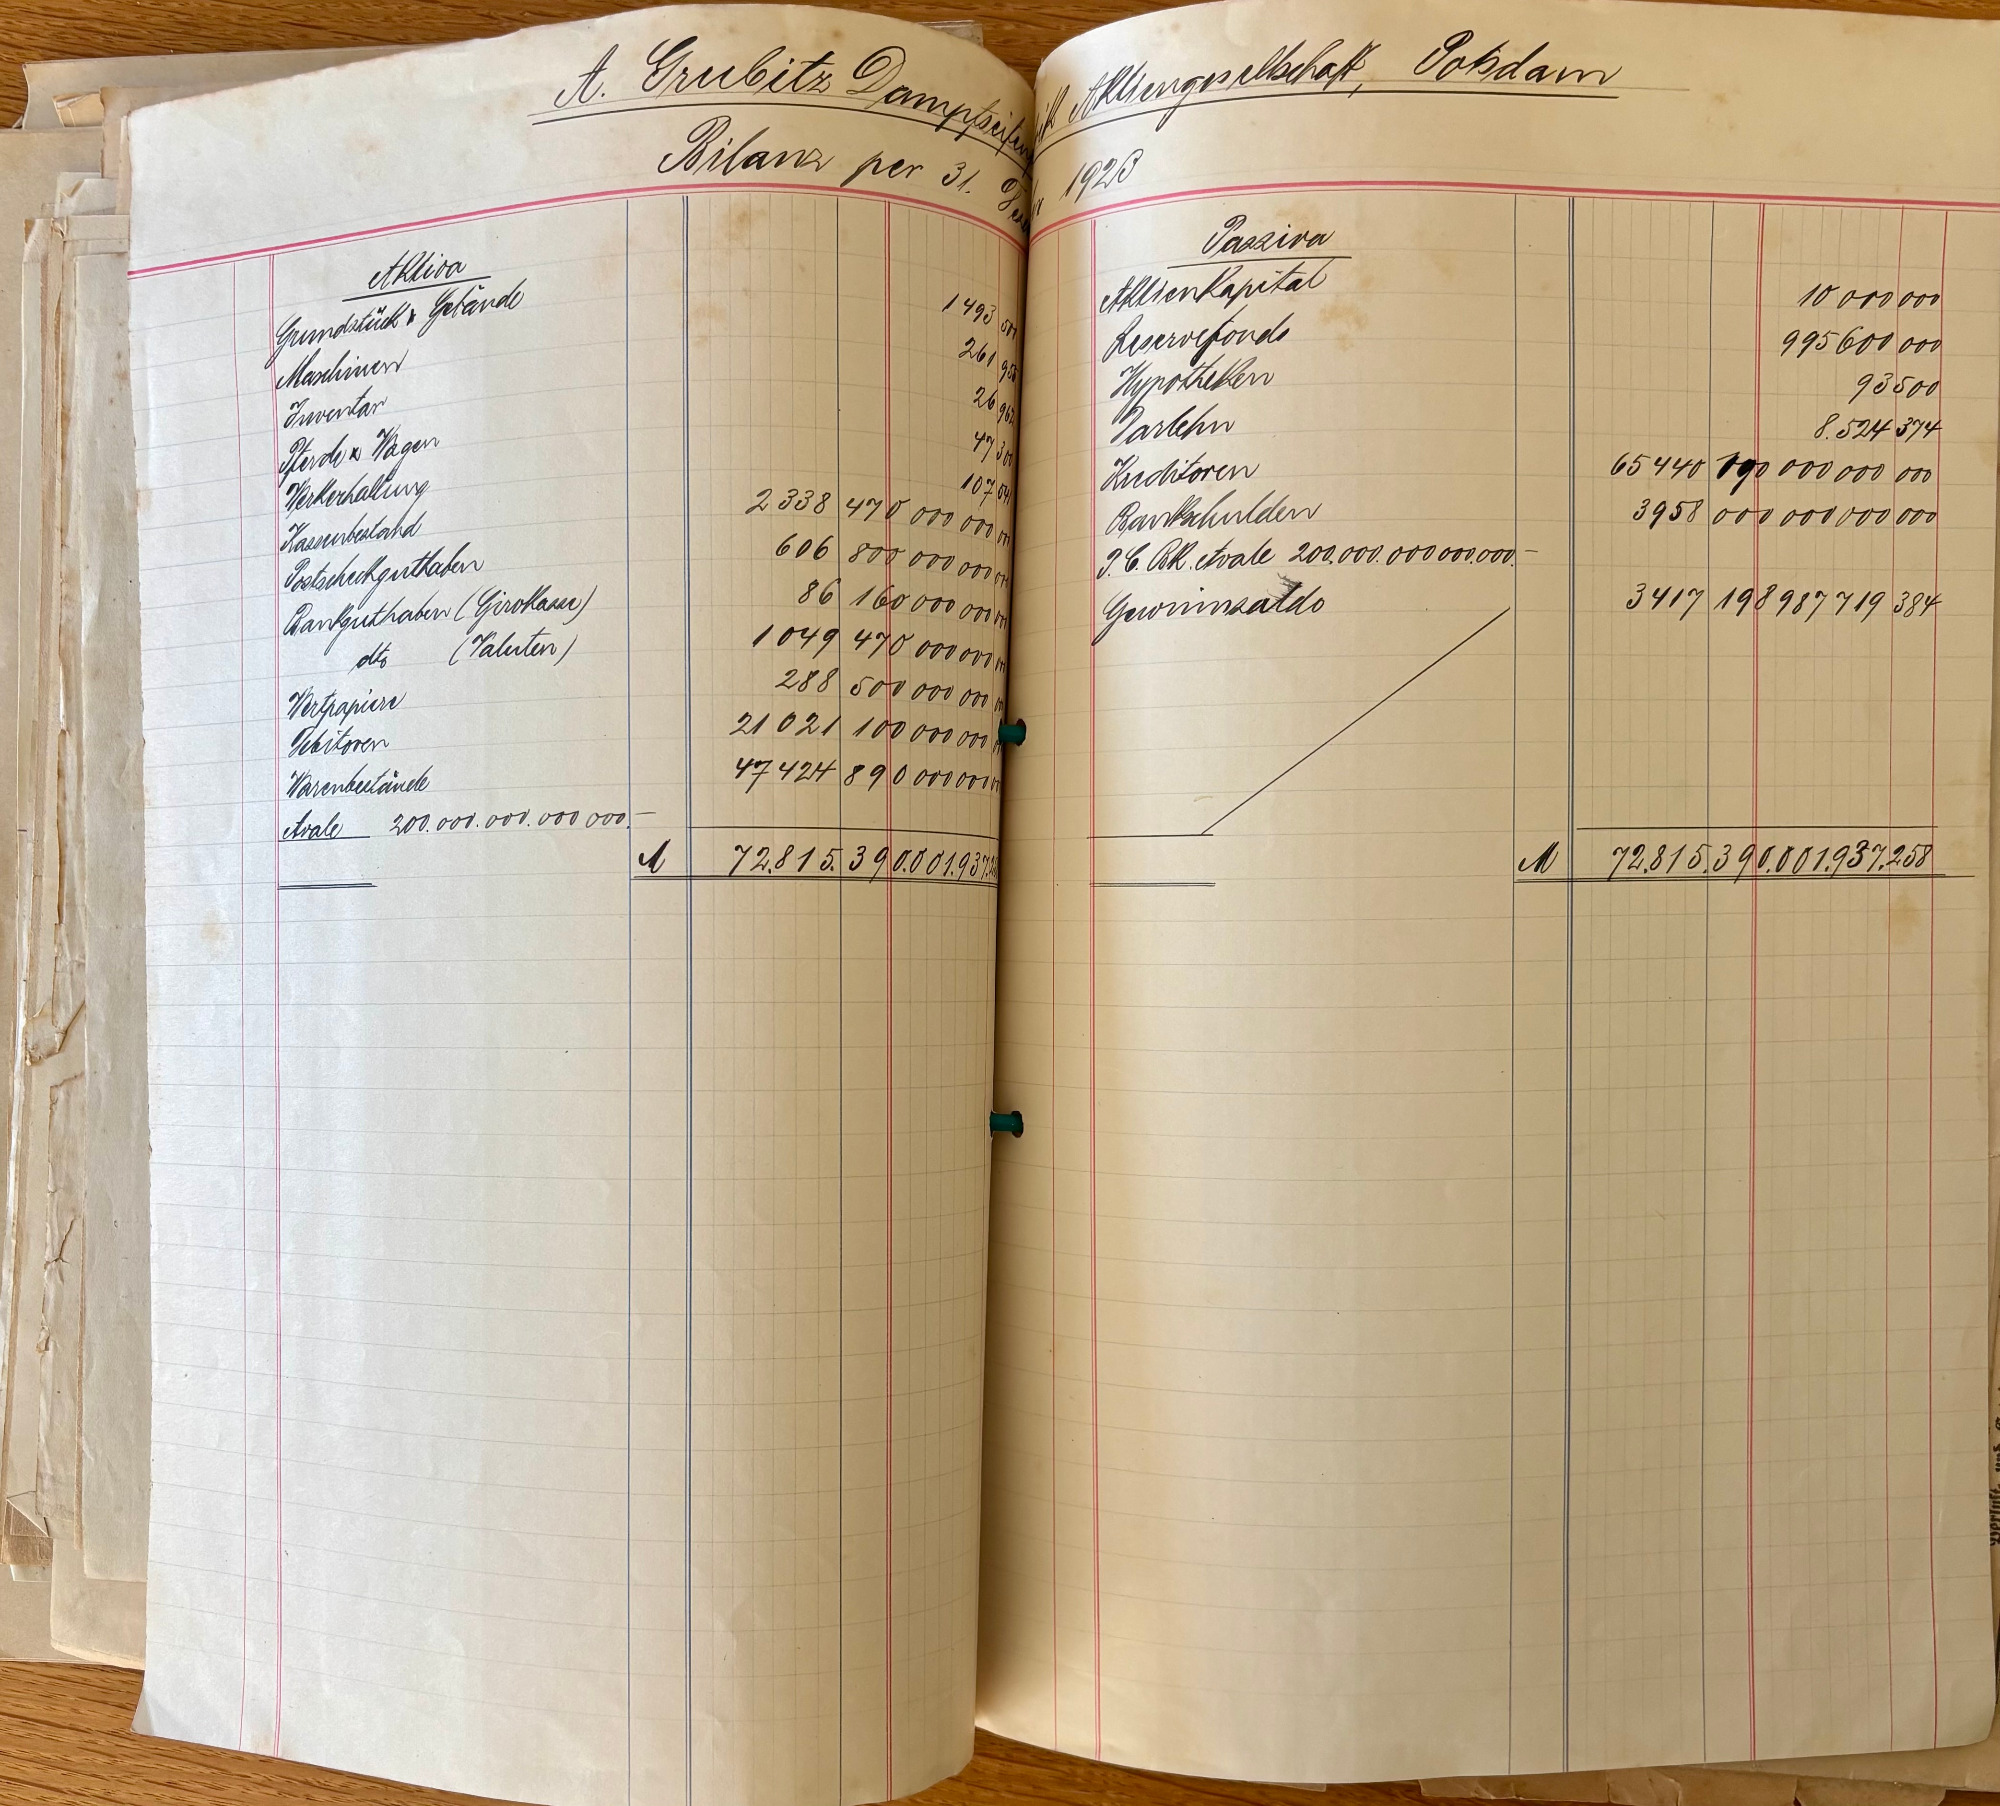 A. Grubitz Dampfseifen
Aktiengesellschaft, Potsdam
Bilanz per 31. 1923
Aktiva
Grundstück & Gebäude 1 493
Maschinen 261
Inventar 26
Pferde & Wagen 47
Werkerhaltung 107
Kassenbestand 2 338 470 000 000
Postscheckguthaben 606 800 000 000
Bankguthaben (Girokasse) 86 160 000 000
dto (Valuten) 1 049 470 000 000
Wertpapiere 288 500 000 000
Debitoren 21 021 100 000 000
Warenbestände 47 424 890 000 000
Avale 200.000.000.000 000.—
M 72.815.390.001.937.
Passiva
Aktienkapital 10 000 000
Reservefonds 995 600 000
Hypotheken 93 500
Darlehn 8.524 374
Kreditoren 65 440 190 000 000 000
Bankschulden 3958 000 000 000 000
P.C. Bk. Avale 200.000.000 000 000.—
Gewinnsaldo 3417 198 987 719 384
M 72.815.390.001.937.258